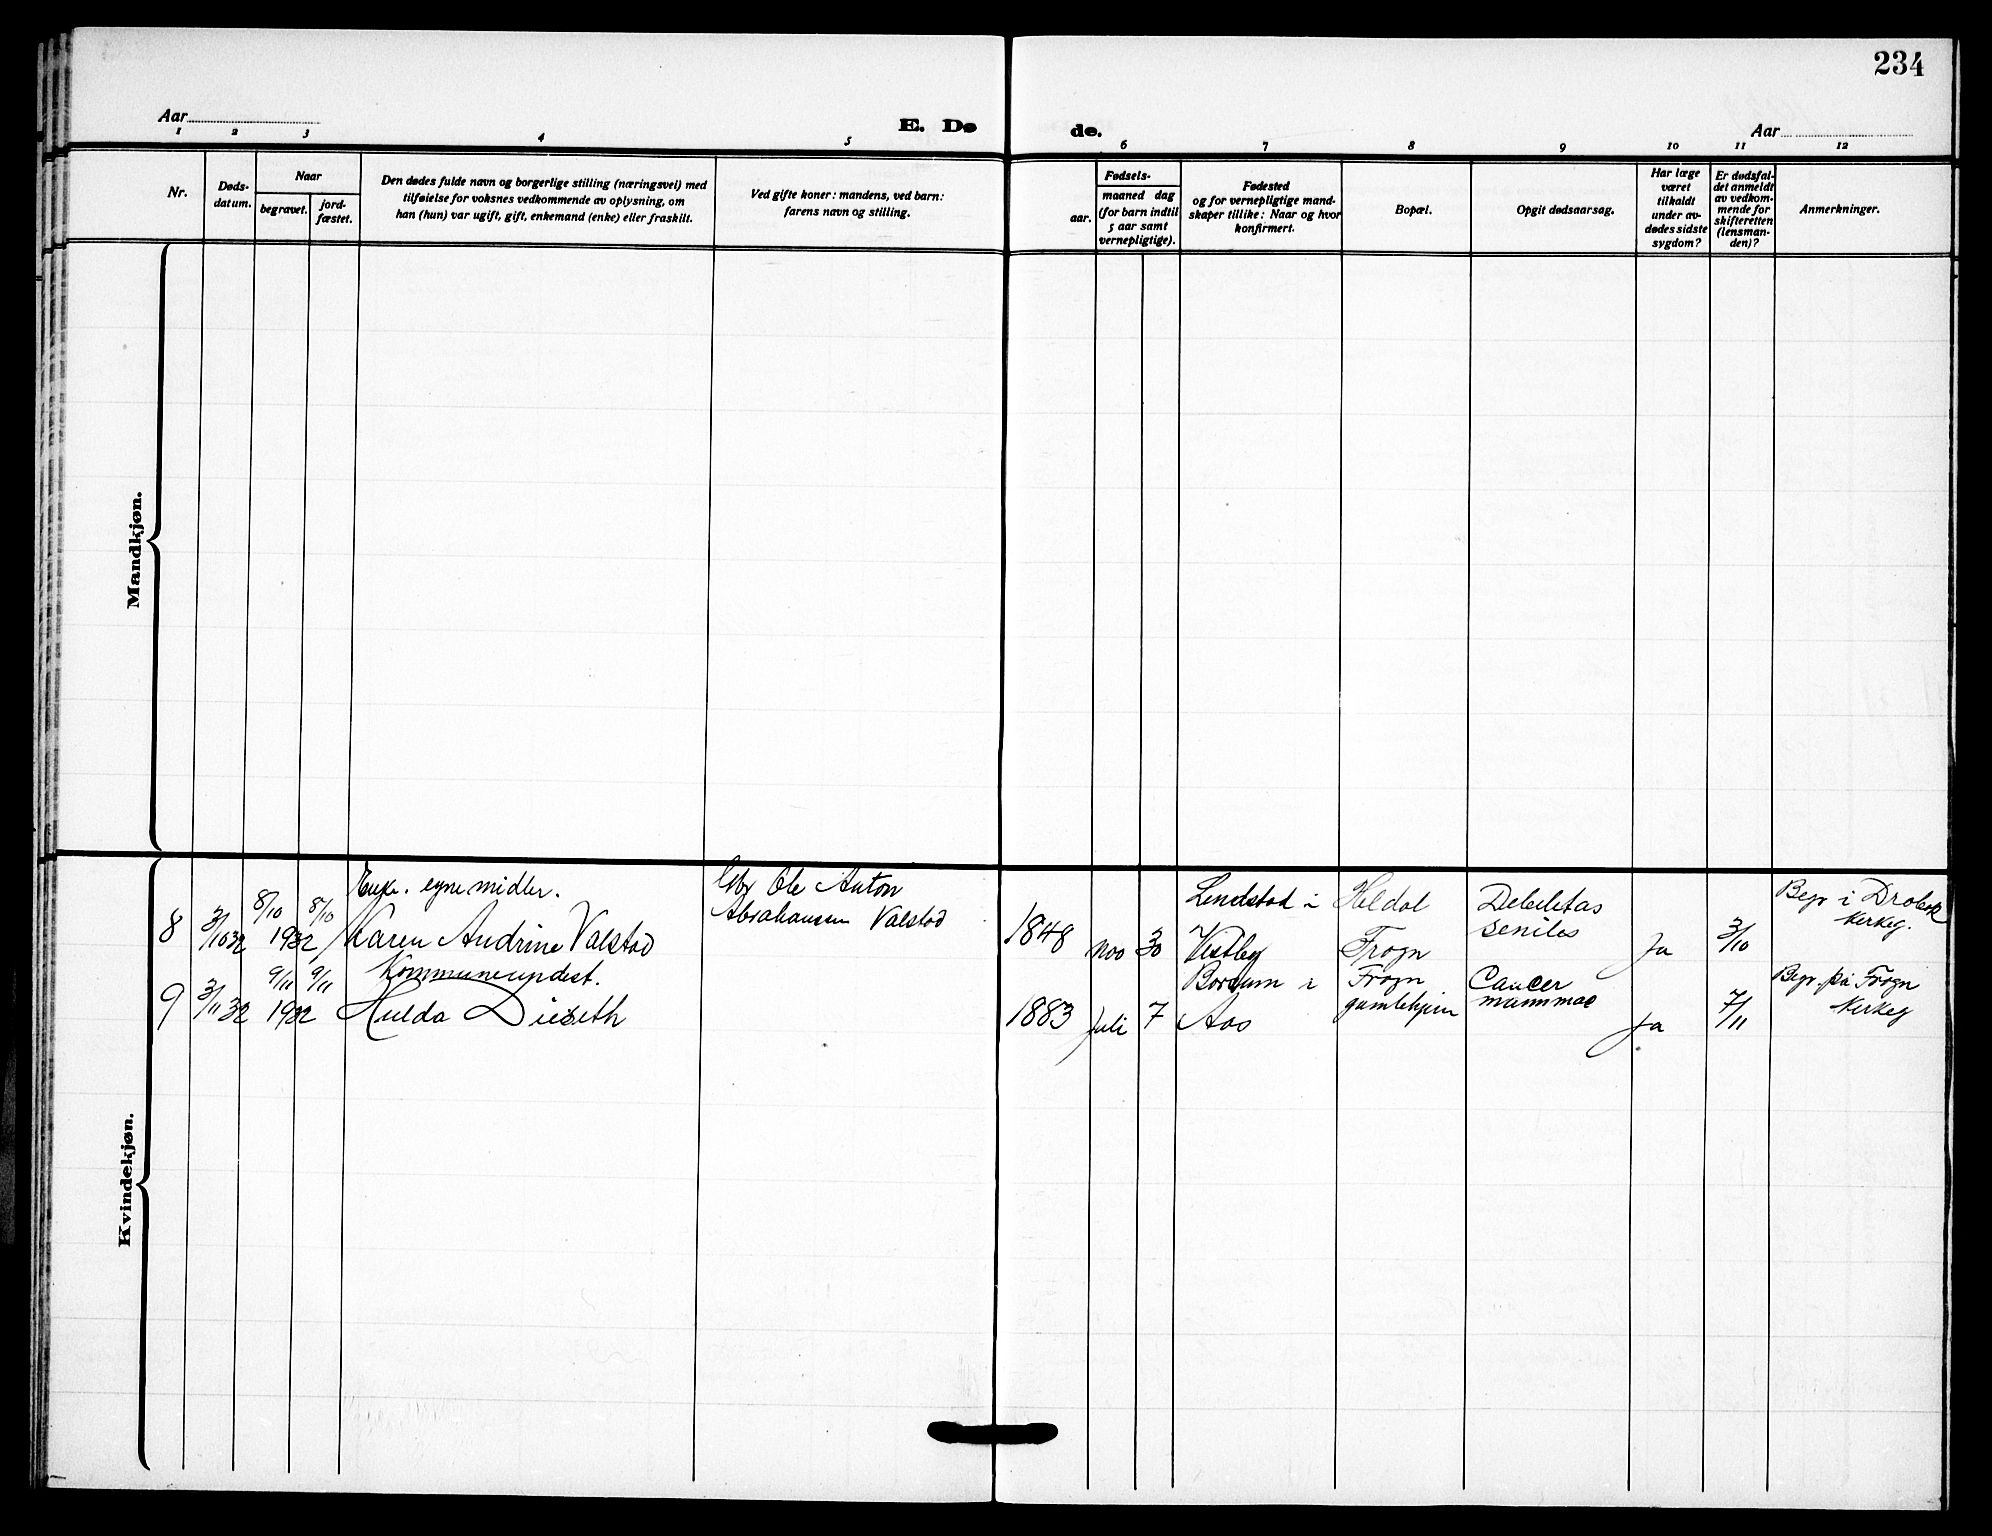 234
Aar
E. Dø
de.
Aar
1 2 3 4 5 6 7 8 9 10 11 12
Nr.
Døds-
datum.
Naar
begravet.
jord-
fæstet.
Den dødes fulde navn og borgerlige stilling (næringsvei) med
tilføielse for voksnes vedkommende av oplysning, om
han (hun) var ugift, gift, enkemand (enke) eller fraskilt.
Ved gifte koner: mandens, ved barn:
farens navn og stilling.
Fødsels-
aar.
maaned dag
(for barn indtil
5 aar samt
vernepligtige).
Fødested
og for vernepligtige mand-
skaper tillike: Naar og hvor
konfirmert.
Bopæl.
Opgit dødsaarsag.
Har læge
været
tilkaldt
under av-
dødes sidste
sygdom?
Er dødsfal-
det anmeldt
av vedkom-
mende for
skifteretten
(lensman-
den)?
Anmerkninger.
Mandkjøn.
Kvindekjøn.
8/10 8/10 Enke. egne midler. Ole Anton
Begr i Drøbak
8 3/10 32 1932 Karen Andrine Valstad Abrahansen Valstad 1848 nov 30 i Heldal
Vestby Frogn
seniles
Ja 3/10 kirkeg.
9/11 9/11 Kommuneundest. i Frogn Cancer Begr. på Frogn
9 3/11 32 1932 Hulda Dieseth 1883 juli 7 Aas gamlehjem mammae Ja 7/11 kirkeg